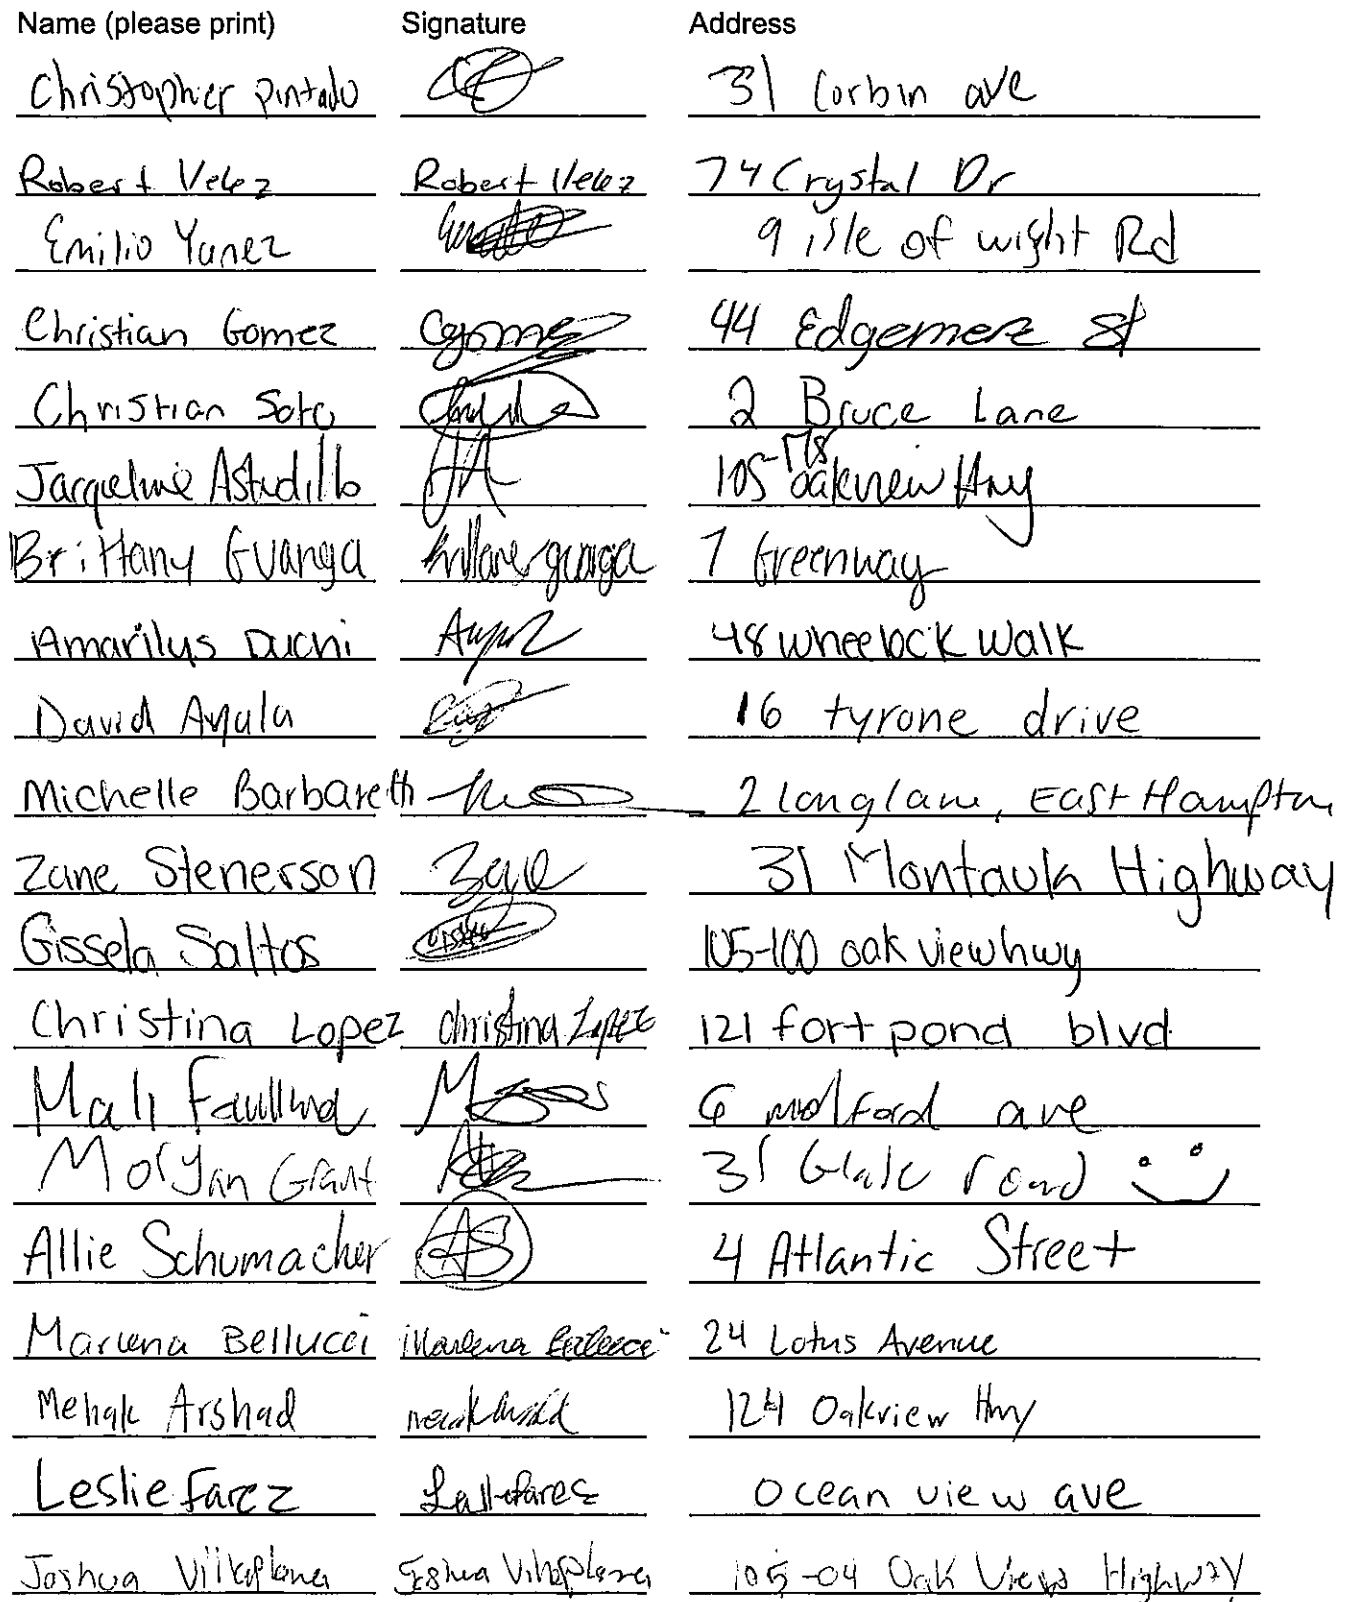 Name (please print) Signature Address
Christopher pintado 31 Corbin ave
Robert Velez Robert Velez 74 Crystal Dr
Emilio Yanez 9 isle of wight Rd
Christian Gomez Cgomez 44 Edgemere St
Christian Soto 2 Bruce Lane
Jacqueline Astudillo JA 105-178 oakview Hwy
Brittany Guanga guanga 7 Greenway
Amarilys Duchi 48 wheelock walk
David Ayala 16 tyrone drive
Michelle Barbareth 2 long lane, East Hampton
Zane Stenerson Zane 31 Montauk Highway
Gissela Saltos 105-100 oak view hwy
Christina Lopez christina Lopez 121 fort pond blvd
Mali 6 ave
Morgan Grant 31 road
Allie Schumacher AS 4 Atlantic Street
Marlena Bellucci Marlena Bellucci 24 Lotus Avenue
Mehak Arshad 124 Oakview Hwy
Leslie Farez 0cean view ave
Joshua Joshua 105-04 Oak View Highway